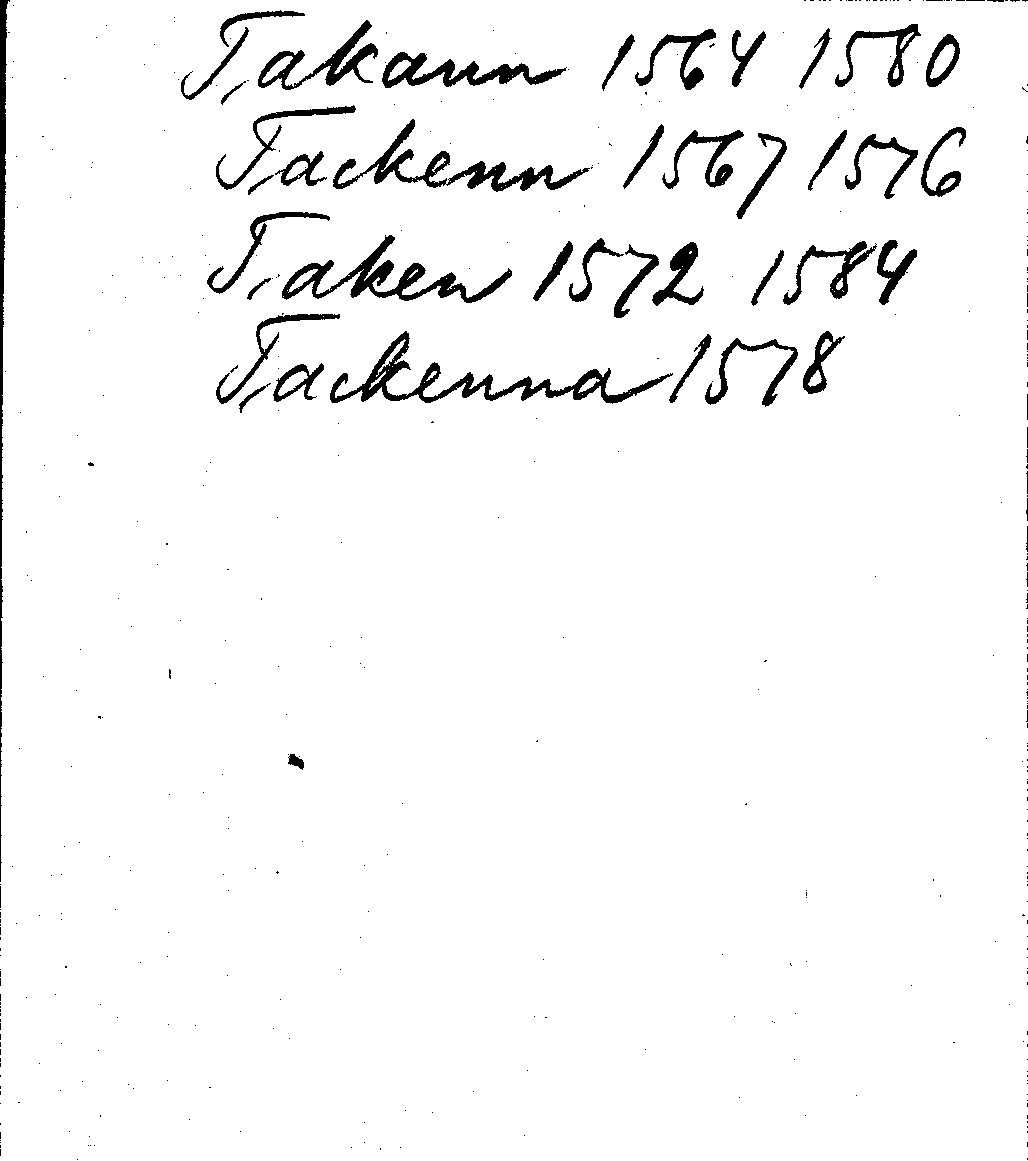 Takann 1564 1580
Tackenn 1567 1576
Taken 1572 1584
Tackenna 1578